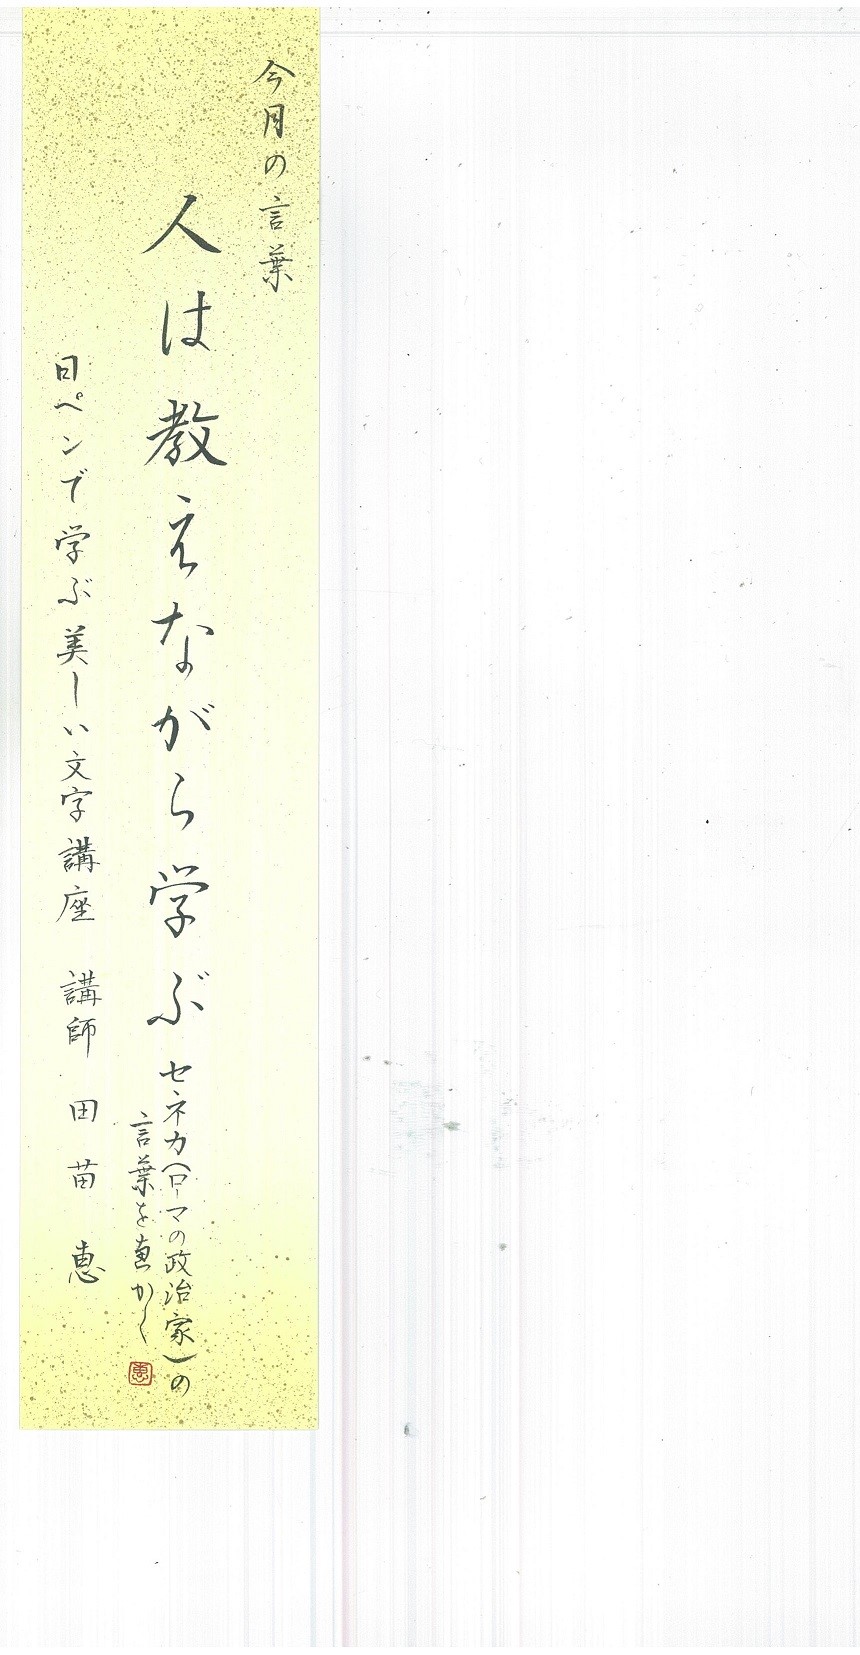 今月の言葉
人は教えながら学ぶ
セネカ(ローマの政治家)の
言葉を恵かく
恵
日ペンで学ぶ美しい文字講座 講師 田苗 恵